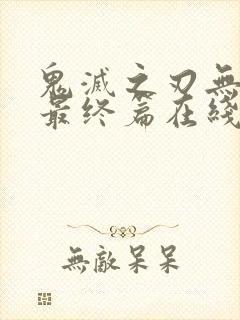 鬼滅之刃無
最终篇在綫
無敵呆呆